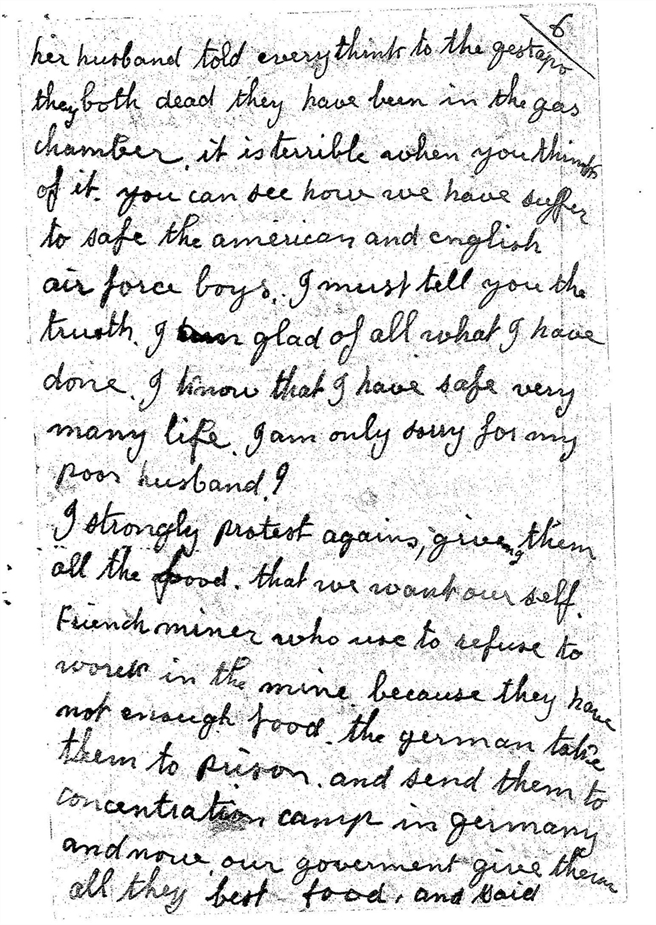 6
her husband told everything to the gestapo
they both dead they have been in the gas
chamber, it is terrible when you think
of it. you can see how we have suffer
to safe the american and english
air force boys. I must tell you the
trueth. I glad of all what I have
done. I know that I have safe very
many life. I am only sorry for my
poor husband!
I strongly protest agains, giveng them
all the food. that we want our self.
French miner who use to refuse to
worek in the mine because they have
not enough food. the german take
them to prison. and send them to
concentration camp in germany
and nowe. our goverment give them
all they best food, and said